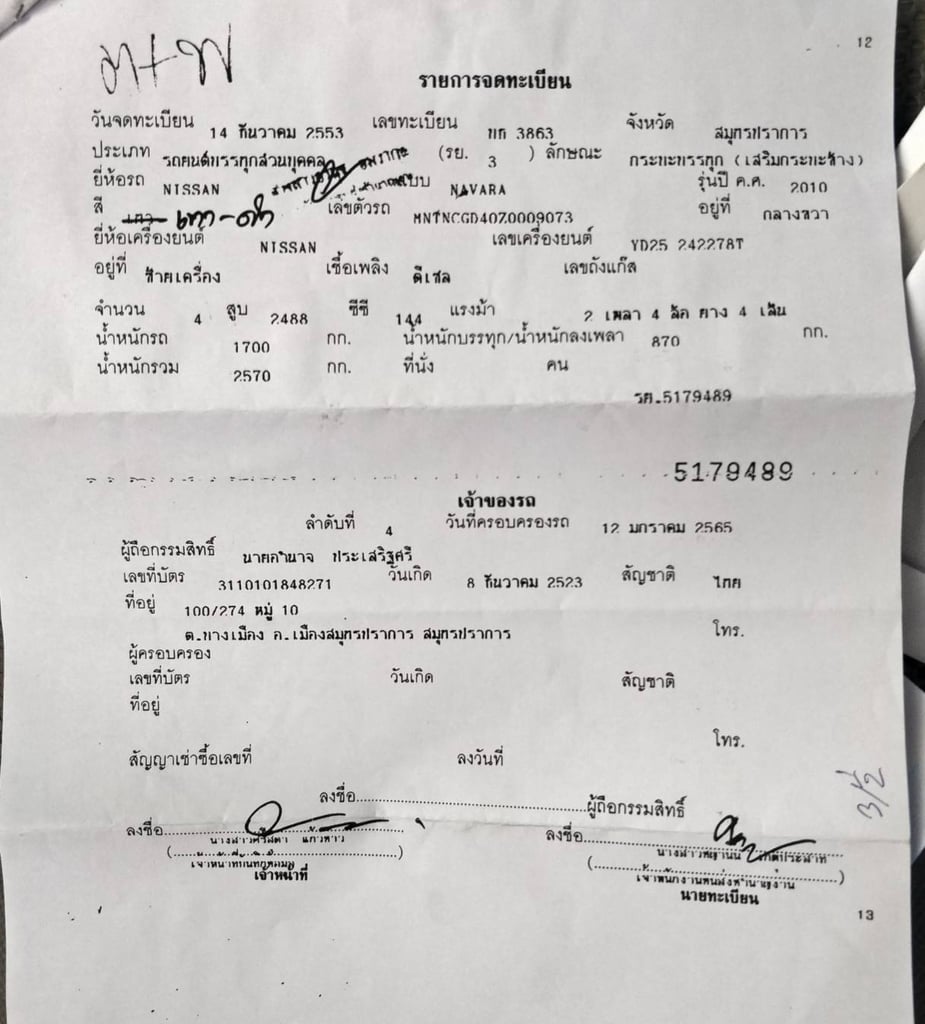 12
รายการจดทะเบียน
วันจดทะเบียน 14 ธันวาคม 2553 เลขทะเบียน 3863 จังหวัด สมุทรปราการ
ประเภท รถยนต์บรรทุกส่วนบุคคล (รย. 3 ) ลักษณะ กระบะบรรทุก (เสริมกระบะข้าง)
ยี่ห้อรถ NISSAN แบบ NAVARA รุ่นปี ค.ศ. 2010
สี เทา-ดำ เลขตัวรถ MNTNCGD40Z0009073 อยู่ที่ กลางขวา
ยี่ห้อเครื่องยนต์ NISSAN เลขเครื่องยนต์ YD25 242278T
อยู่ที่ ซ้ายเครื่อง เชื้อเพลิง ดีเซล เลขถังแก๊ส
จำนวน 4 สูบ 2488 ซีซี 144 แรงม้า 2 เพลา 4 ล้อ ยาง 4 เส้น
น้ำหนักรถ 1700 กก. น้ำหนักบรรทุก/น้ำหนักลงเพลา 870 กก.
น้ำหนักรวม 2570 กก. ที่นั่ง คน
รย.5179489
5179489
เจ้าของรถ
ลำดับที่ 4 วันที่ครอบครองรถ 12 มกราคม 2565
ผู้ถือกรรมสิทธิ์ นายอำนาจ ประเสริฐศรี
เลขที่บัตร 3110101848271 วันเกิด 8 ธันวาคม 2523 สัญชาติ ไทย
ที่อยู่ 100/274 หมู่ 10
ต.บางเมือง อ.เมืองสมุทรปราการ สมุทรปราการ โทร.
ผู้ครอบครอง
เลขที่บัตร วันเกิด สัญชาติ
ที่อยู่
โทร.
สัญญาเช่าซื้อเลขที่ ลงวันที่
ลงชื่อ ผู้ถือกรรมสิทธิ์
ลงชื่อ ลงชื่อ
เจ้าหน้าที่ นายทะเบียน
13